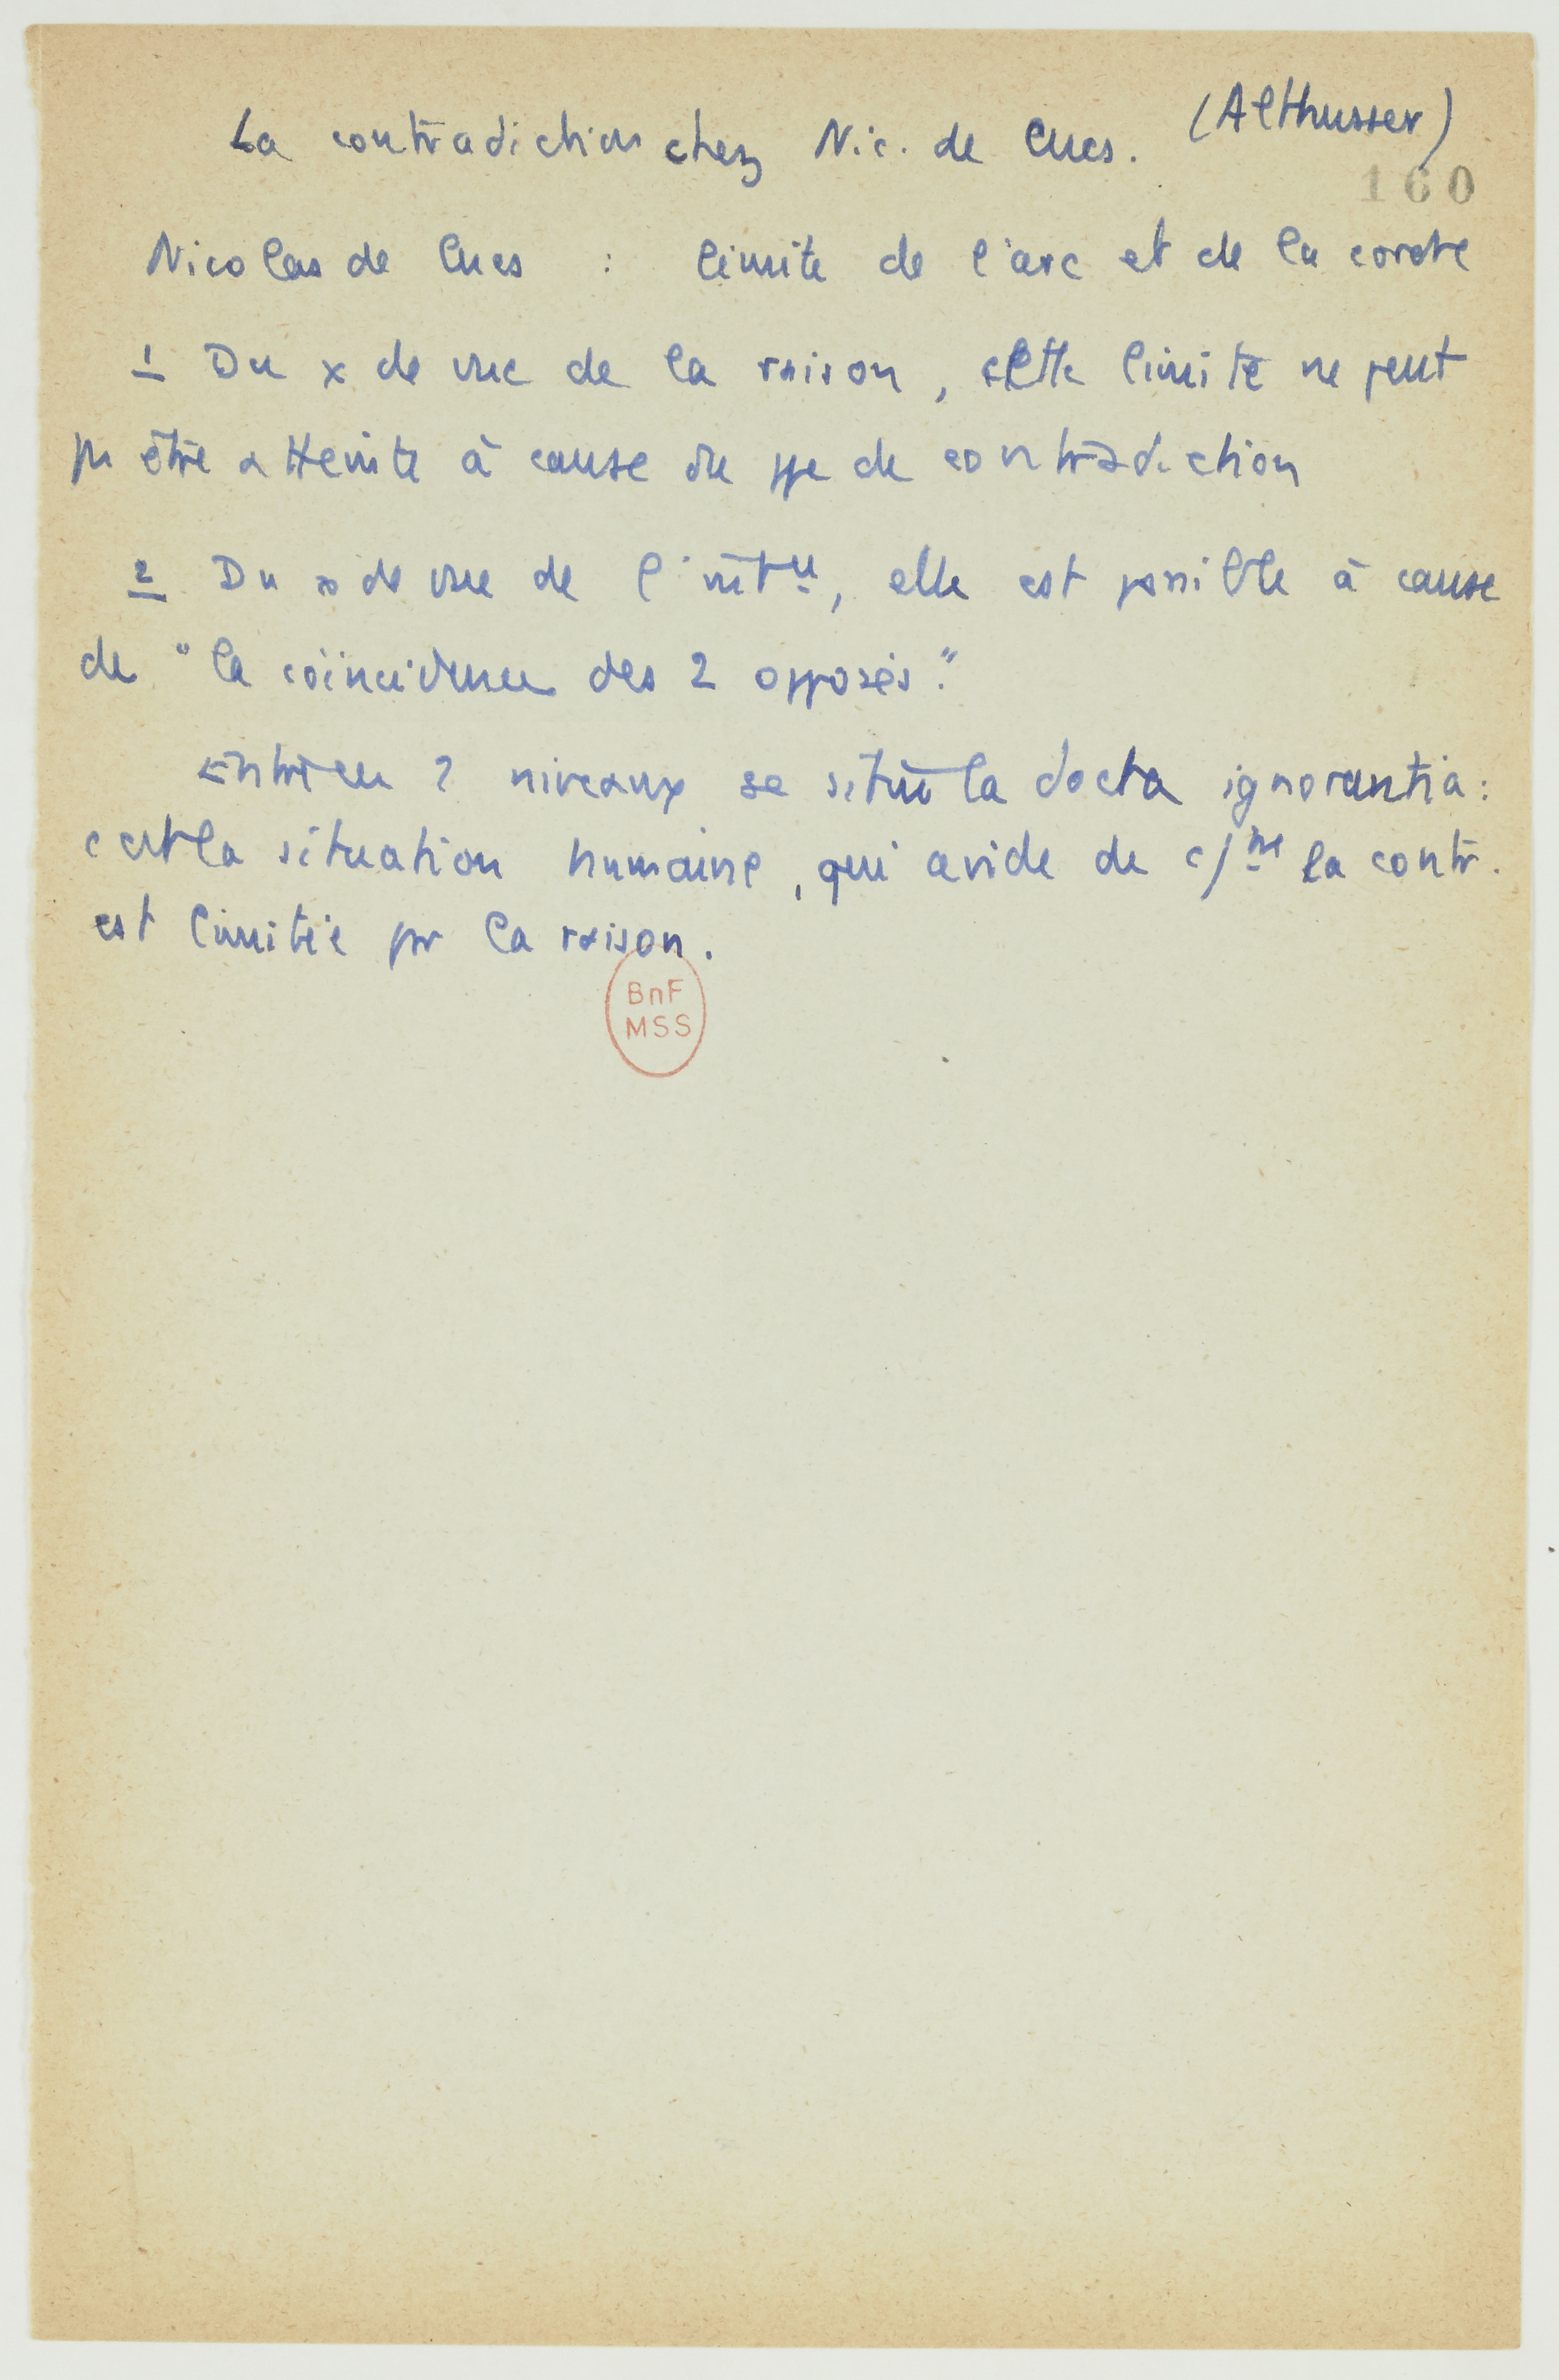 La contradiction chez Nic. de Cues. (Althusser)
160
Nicolas de Cues : limite de l'arc et de la corde
1 Du x de vue de la raison, cette limite ne peut
pas être atteinte à cause du ppe de contradiction
2 Du x de vue de l'int^u, elle est possible à cause
de "la coïncidence des 2 opposés."
Entre ces 2 niveaux se situe la docta ignorantia :
c'est la situation humaine, qui avide de c/^ne la contr.
est limitée par la raison.
BnF
MSS